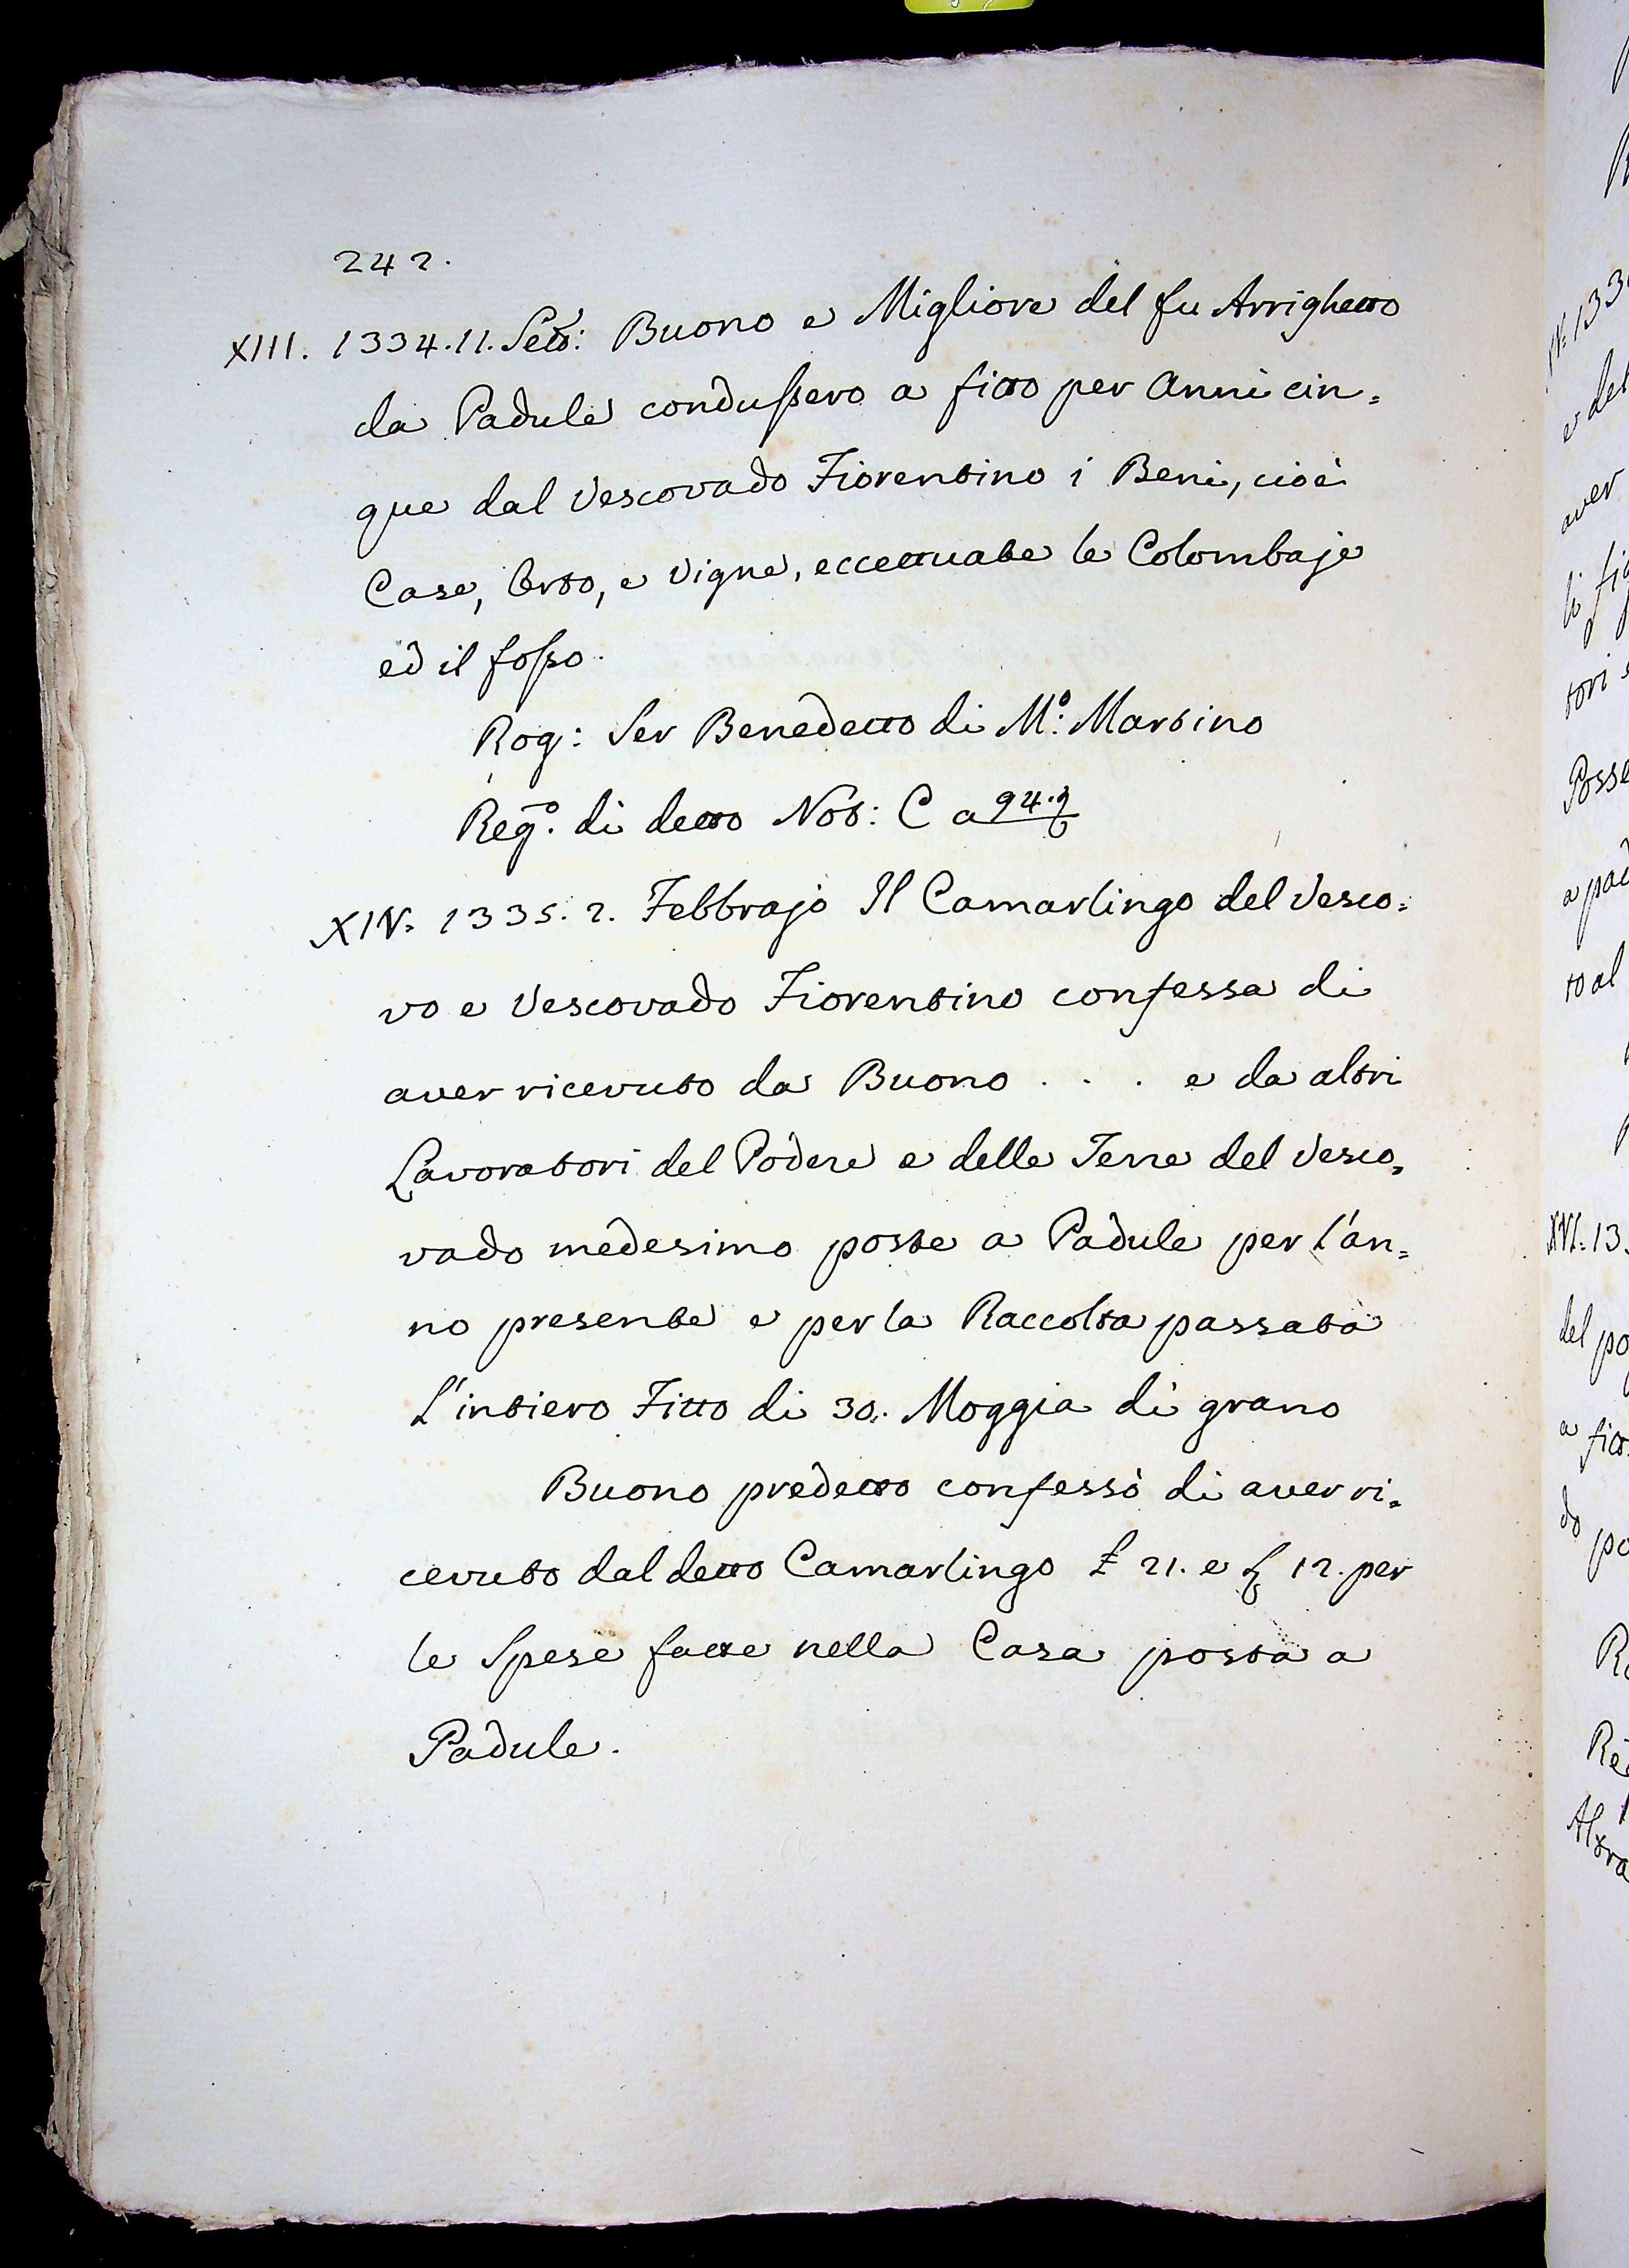 242.
XIII. 1334.11. Sett: Buono e Migliore del fu Arrighetto
da Padule condussero a fitto per Anni cin=
que dal Vescovado Fiorentino i Beni, cioè
Case, Orto, e Vigne, eccettuate le Colombaje
ed il fosso.
Rog: Ser Benedetto di Mº: Martino
Regº. di detto Not: C a 94.
XIV. 1335. 2. Febbrajo Il Camarlingo del Vesco=
vo e Vescovado Fiorentino confessa di
aver ricevuto da Buono . . . e da altri
Lavoratori del Podere e delle Terre del Vesco=
vado medesimo poste a Padule per l'an=
no presente e per la Raccolta passata
L'intiero Fitto di 30. Moggia di grano
Buono predetto confessò di aver ri=
cevuto dal detto Camarlingo £ 21. e 12. per
le Spese fatte nella Casa posta a
Padule.